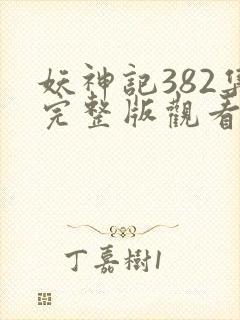 妖神記382集
完整版觀看
丁嘉樹1